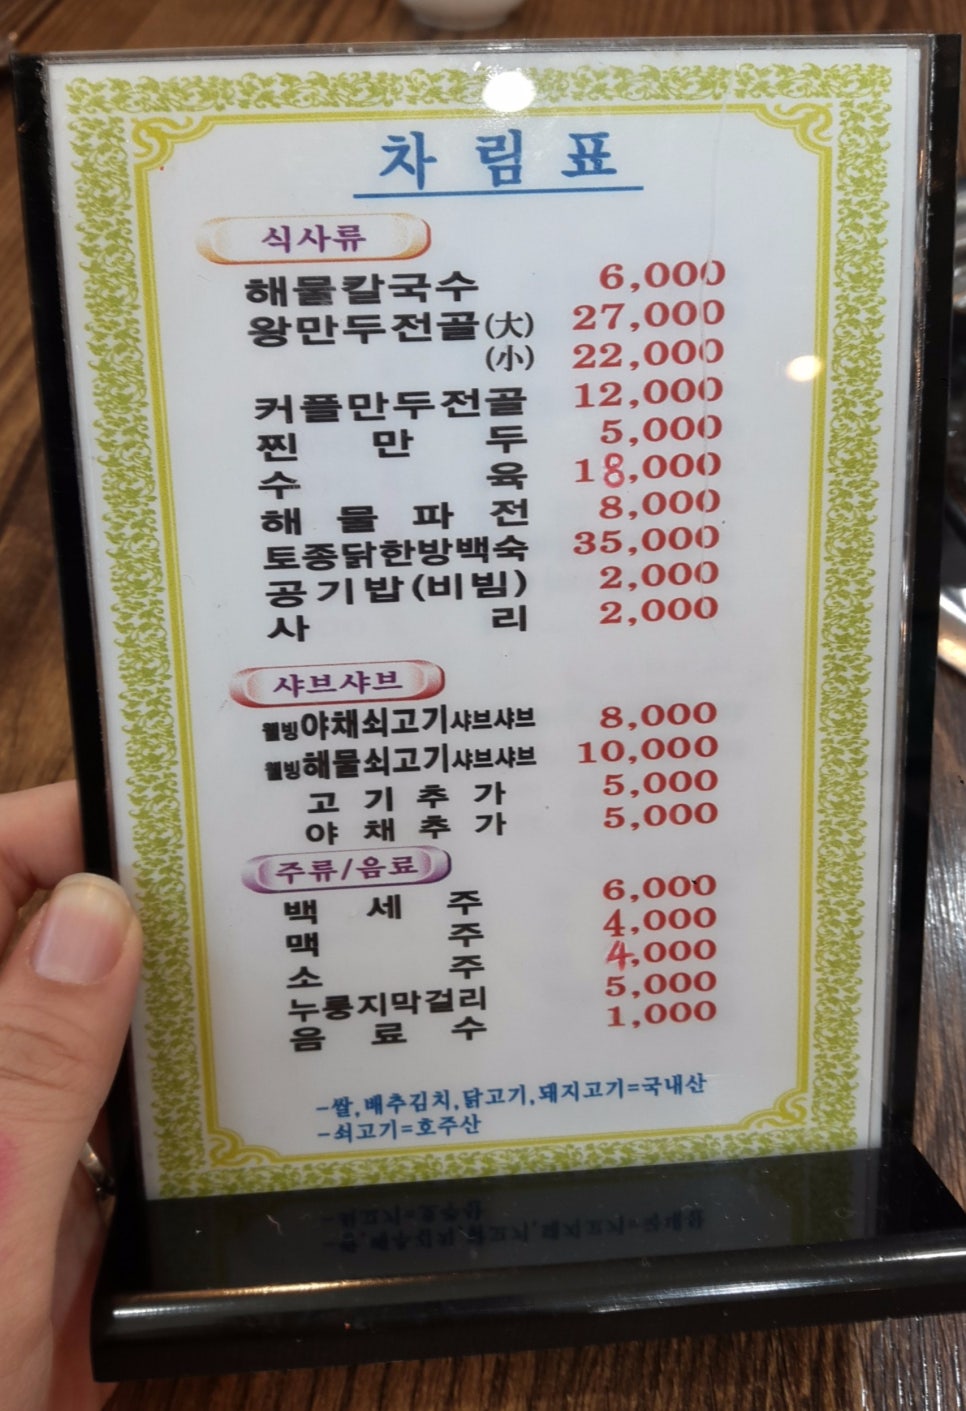 차림표
식사류
해물칼국수 6,000
왕만두전골(大) 27,000
(小) 22,000
커플만두전골 12,000
찐만두 5,000
수육 18,000
해물파전 8,000
토종닭한방백숙 35,000
공기밥(비빔) 2,000
사리 2,000
샤브샤브
웰빙야채쇠고기샤브샤브 8,000
웰빙해물쇠고기샤브샤브 10,000
고기추가 5,000
야채추가 5,000
주류/음료
백세주 6,000
맥주 4,000
소주 4,000
누룽지막걸리 5,000
음료수 1,000
-쌀,배추김치,닭고기,돼지고기=국내산
-쇠고기=호주산